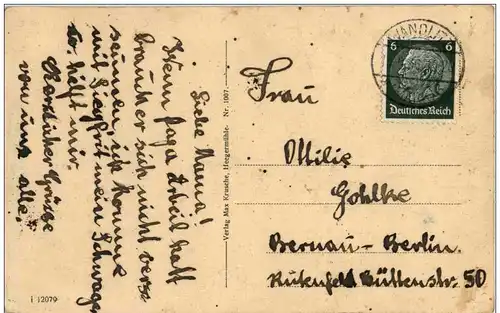 Liebe Mama!
Wenn Papa Urteil hatt
braucher sich nicht vers
seumen, ich komme
mit Siegfrit mein Schwager
so. helft mir.
Herzlicher Grüsse
von uns
alle.
Verlag Max Krusche, Heegermühle. Nr. 1007.
WANDLITZ
6 6
Deutsches Reich
Frau
Ottilie
Gohlke
Bernau – Berlin.
Hüttenstr. 50
I 12079